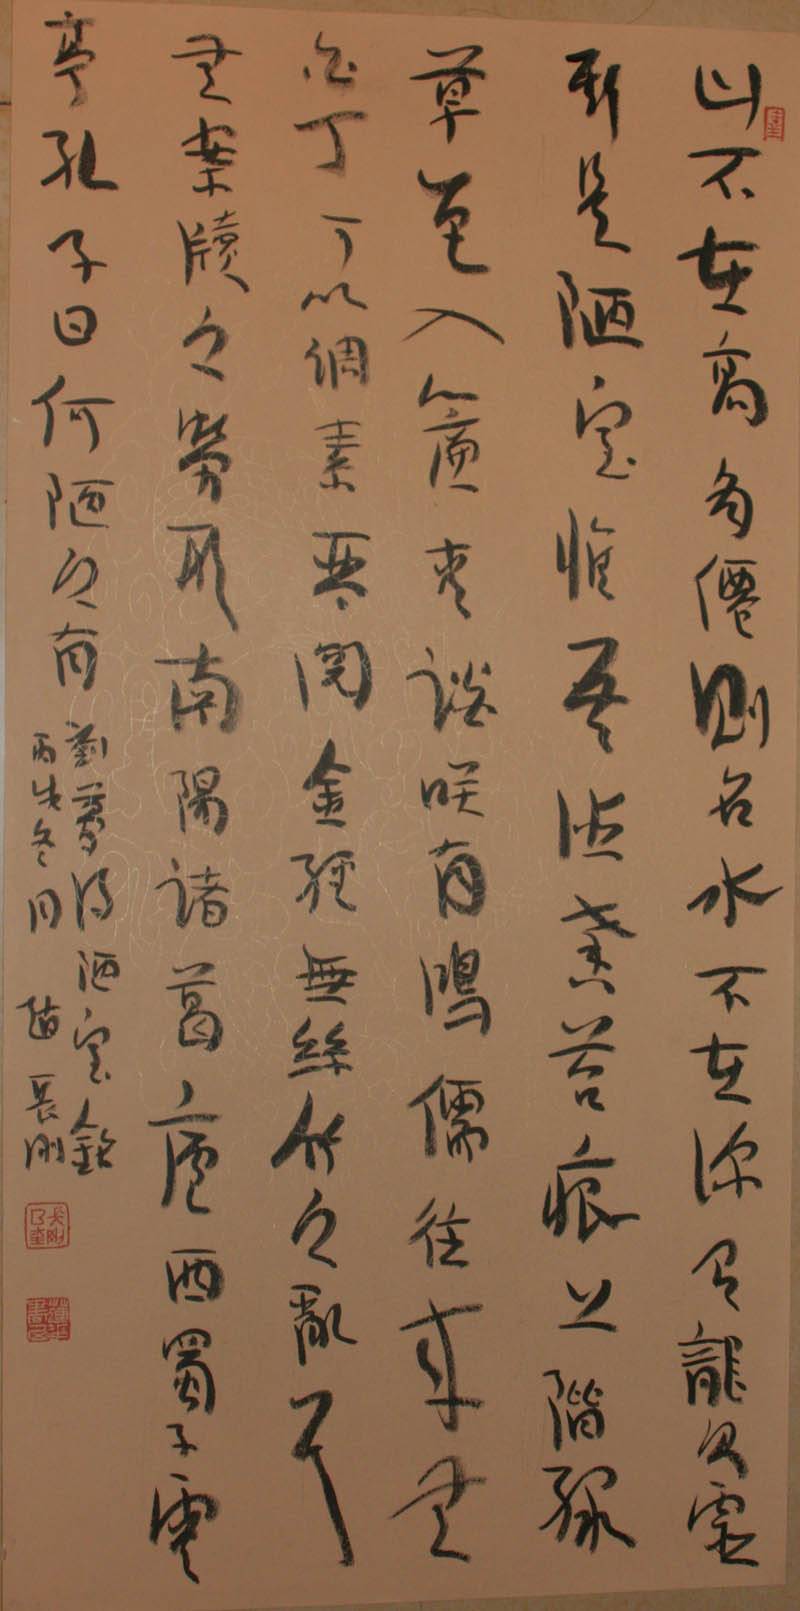 山不在高有僊則名水不在深有龍則靈
斯是陋室惟吾德馨苔痕上階綠
草色入簾青談咲有鴻儒往來無
白丁可以調素琴閱金經無絲竹之亂耳
无案牘之勞形南陽諸葛廬西蜀子雲
亭孔子曰何陋之有
劉夢得陋室銘
丙戌冬月 趙長剛